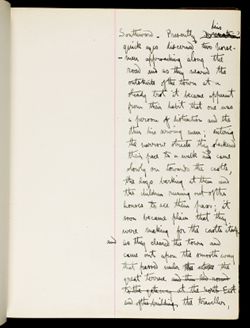 his
Southwood. Presently
quick eyes discerned two horse-
-men approaching along the
road and as they neared the
outskirts of the town at a
steady trot it became apparent
from their habit that one was
a person of distinction and the
other his serving man; entering
the narrow streets they slackened
their pace to a walk and came
slowly on towards the castle,
the dogs barking at them and
the children running out of the
houses to see them pass; it
soon became plain that they
were making for the castle
and as they cleared the town and
came out upon the smooth way
that passed under the
great terrace
to the gateway at the North East
end of the building, the traveller,